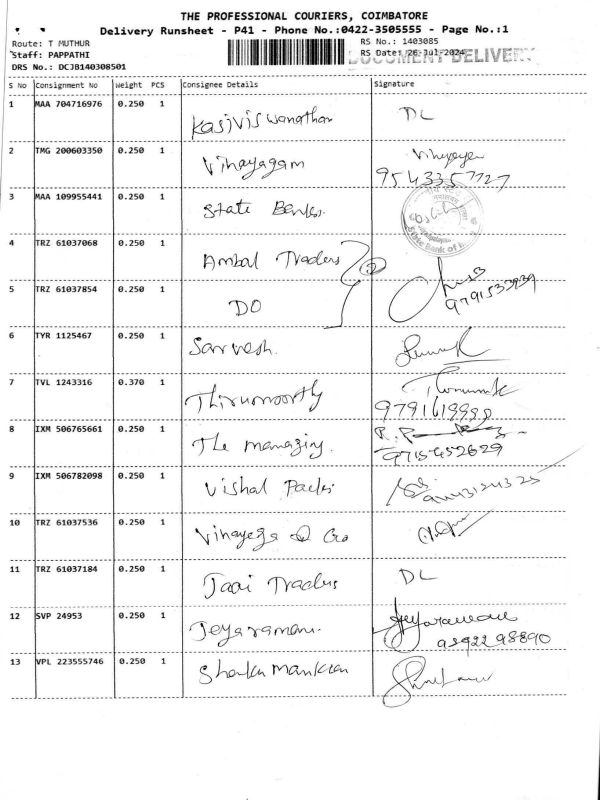 THE PROFESSIONAL COURIERS, COIMBATORE
Delivery Runsheet - P41 - Phone No.:0422-3505555 - Page No.:1
Route: T MUTHUR
RS No.: 1403085
Staff: PAPPATHI
RS Date: 26-Jul-2024
DOCUMENT DELIVERY
DRS No.: DCJB140308501
S No Consignment No Weight PCS Consignee Details Signature
1 MAA 704716976 0.250 1 Kasiviswanathan DL
2 TMG 200603350 0.250 1 Vinayagam
9543357727
3 MAA 109955441 0.250 1 State Bank
State Bank of
4 TRZ 61037068 0.250 1 Ambal Traders 2
5 TRZ 61037854 0.250 1 DO
9791533939
6 TYR 1125467 0.250 1 Sarvesh.
7 TVL 1243316 0.370 1 Thirumoorthy
8 IXM 506765661 0.250 1 The managing.
9715452629
9 IXM 506782098 0.250 1 Vishal
10 TRZ 61037536 0.250 1 Vinayega & Co
11 TRZ 61037184 0.250 1 Jaai Traders DL
12 SVP 24953 0.250 1 Jeyaraman. Jeyaraman
13 VPL 223555746 0.250 1